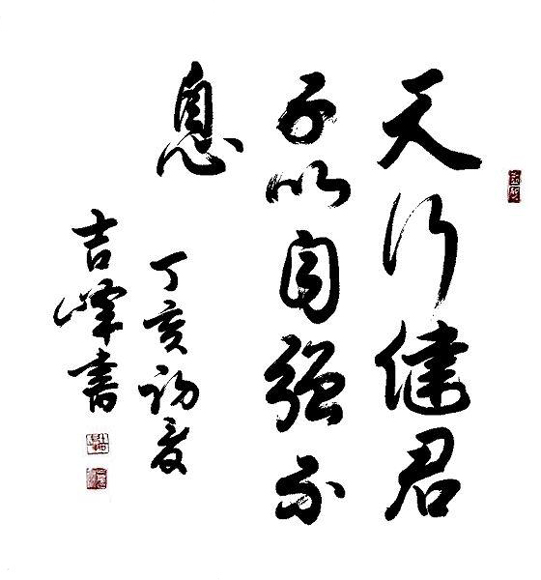 天行健君
子以自强不
息
丁亥初夏
吉峰書